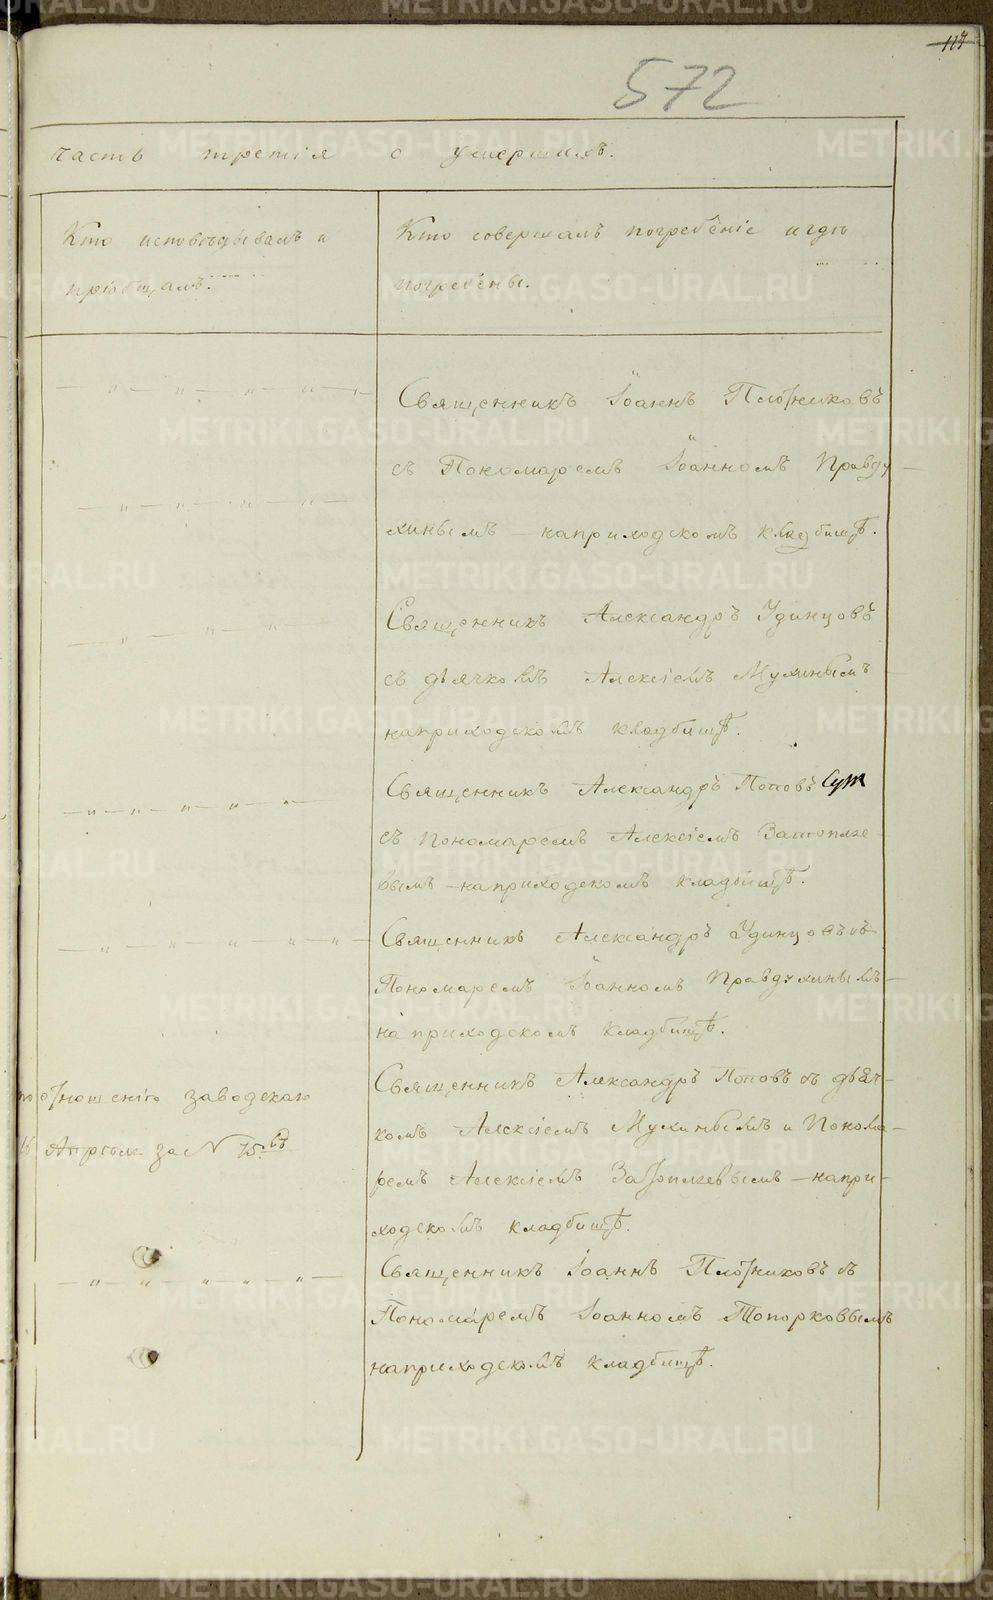 117
572
часть третія о умершихъ.
Кто исповѣдывалъ и
пріобщалъ.
Кто совершалъ погребеніе и гдѣ
погребены.
Священникъ Іоаннъ Плотниковъ
съ Пономаремъ Іоанномъ Правду
хинымъ — наприходскомъ кладбищѣ.
Священникъ Александръ Удинцовъ
съ дьячкомъ Алексіемъ Мухинымъ
наприходскомъ кладбищѣ.
Священникъ Александръ Поповъ
съ пономаремъ Алексіемъ Затопляе
вымъ — наприходскомъ кладбищѣ.
Священникъ Александръ Удинцовъ съ
Пономаремъ Іоанномъ Правдухинымъ —
на приходскомъ кладбищѣ.
по отношенію заводскаго
16 Апрѣля за N
Священникъ Александръ Поповъ съ дьяч-
комъ Алексіемъ Мухинымъ и Понома-
ремъ Алексіемъ Затопляевымъ — напри-
ходскомъ кладбищѣ.
Священникъ Іоаннъ Плотниковъ съ
Пономаремъ Іоанномъ Топорковымъ
наприходскомъ кладбищѣ.
METRIKI.GASO-URAL.RU